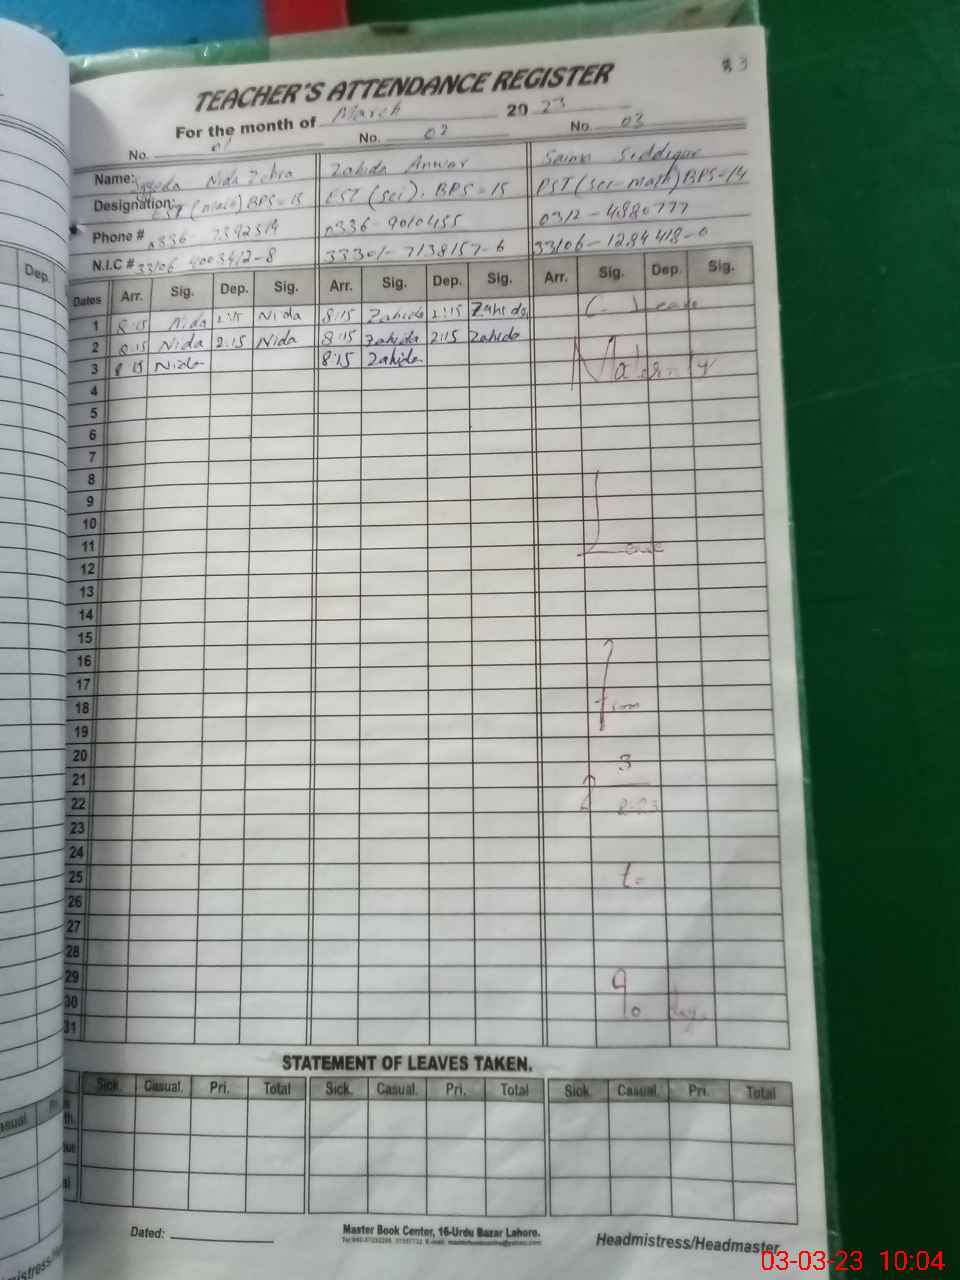 # 3
TEACHER'S ATTENDANCE REGISTER
For the month of March 2023
No. 01 No. 02 No. 03
Name: Nida Zehra Zahida Anwar Siddique
Designation: EST (math) BPS = 15 EST (sci). BPS = 15 PST (sci-math) BPS=14
Phone # 0336- 0336-9010455 0312-4880777
N.I.C # 33106 4003412-8 33301-7138157-6 33106-1284418-0
Dates Arr. Sig. Dep. Sig. Arr. Sig. Dep. Sig. Arr. Sig. Dep. Sig.
1 8:15 Nida 2:15 Nida 8:15 Zahida 2:15 Zahida Leave
2 8:15 Nida 2:15 Nida 8:15 Zahida 2:15 Zahida
3 8 15 Nida 8:15 Zahida Maternity
4
5
6
7
8
9
10
11 Leave
12
13
14
15
16
17
18 from
19
20
21 3
22 2-23
23
24
25 to
26
27
28
29
30 90 days
31
STATEMENT OF LEAVES TAKEN.
Sick. Casual. Pri. Total Sick. Casual. Pri. Total Sick. Casual. Pri. Total
Dated:
Master Book Center, 16-Urdu Bazar Lahore.
Headmistress/Headmaster
03-03-23 10:04
Dep.